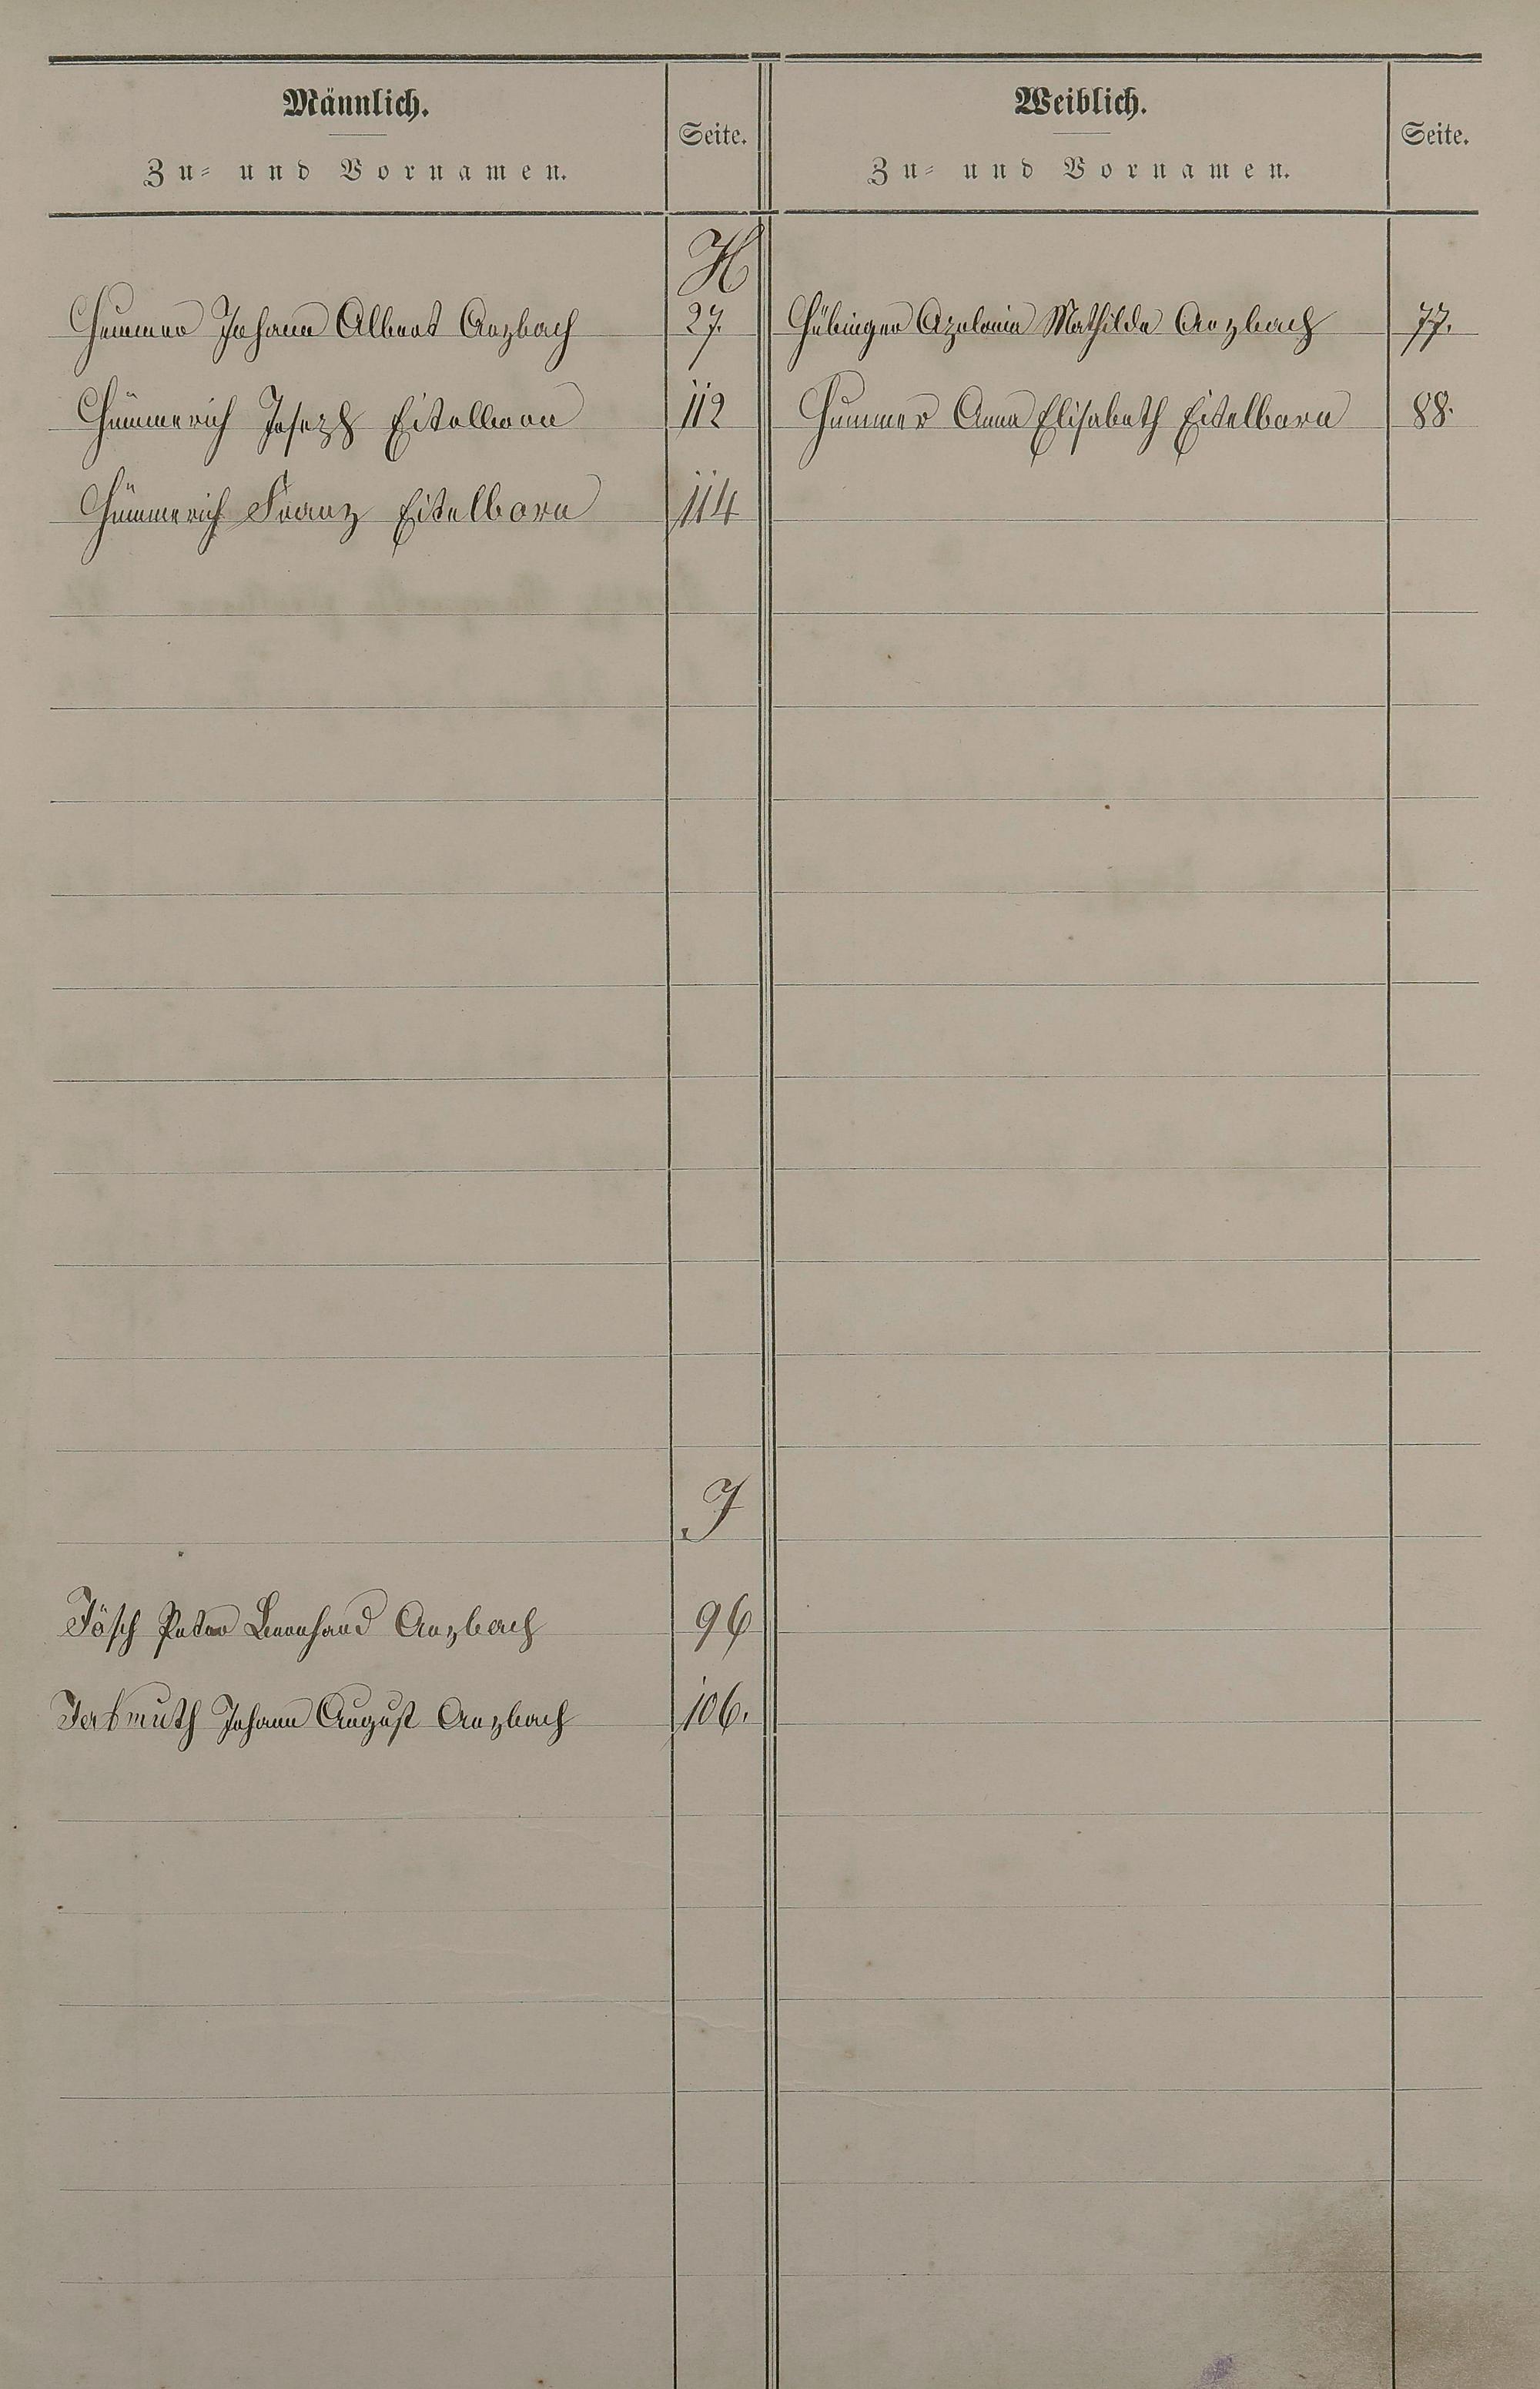 Männlich.
Zu- und Vornamen.
Seite.
Weiblich.
Zu- und Vornamen.
Seite.
H
Hummer Johann Albert Arzbach 27. Hübinger Apolonia Mathilde Arzbach 77.
Hümmerich Joseph Eitelborn 112 Hummer Anna Elisabeth Eitelborn 88.
Hümmerich Franz Eitelborn 114
J
Jösch Peter Bernhard Arzbach 96
Jermuth Johann August Arzbach 106.